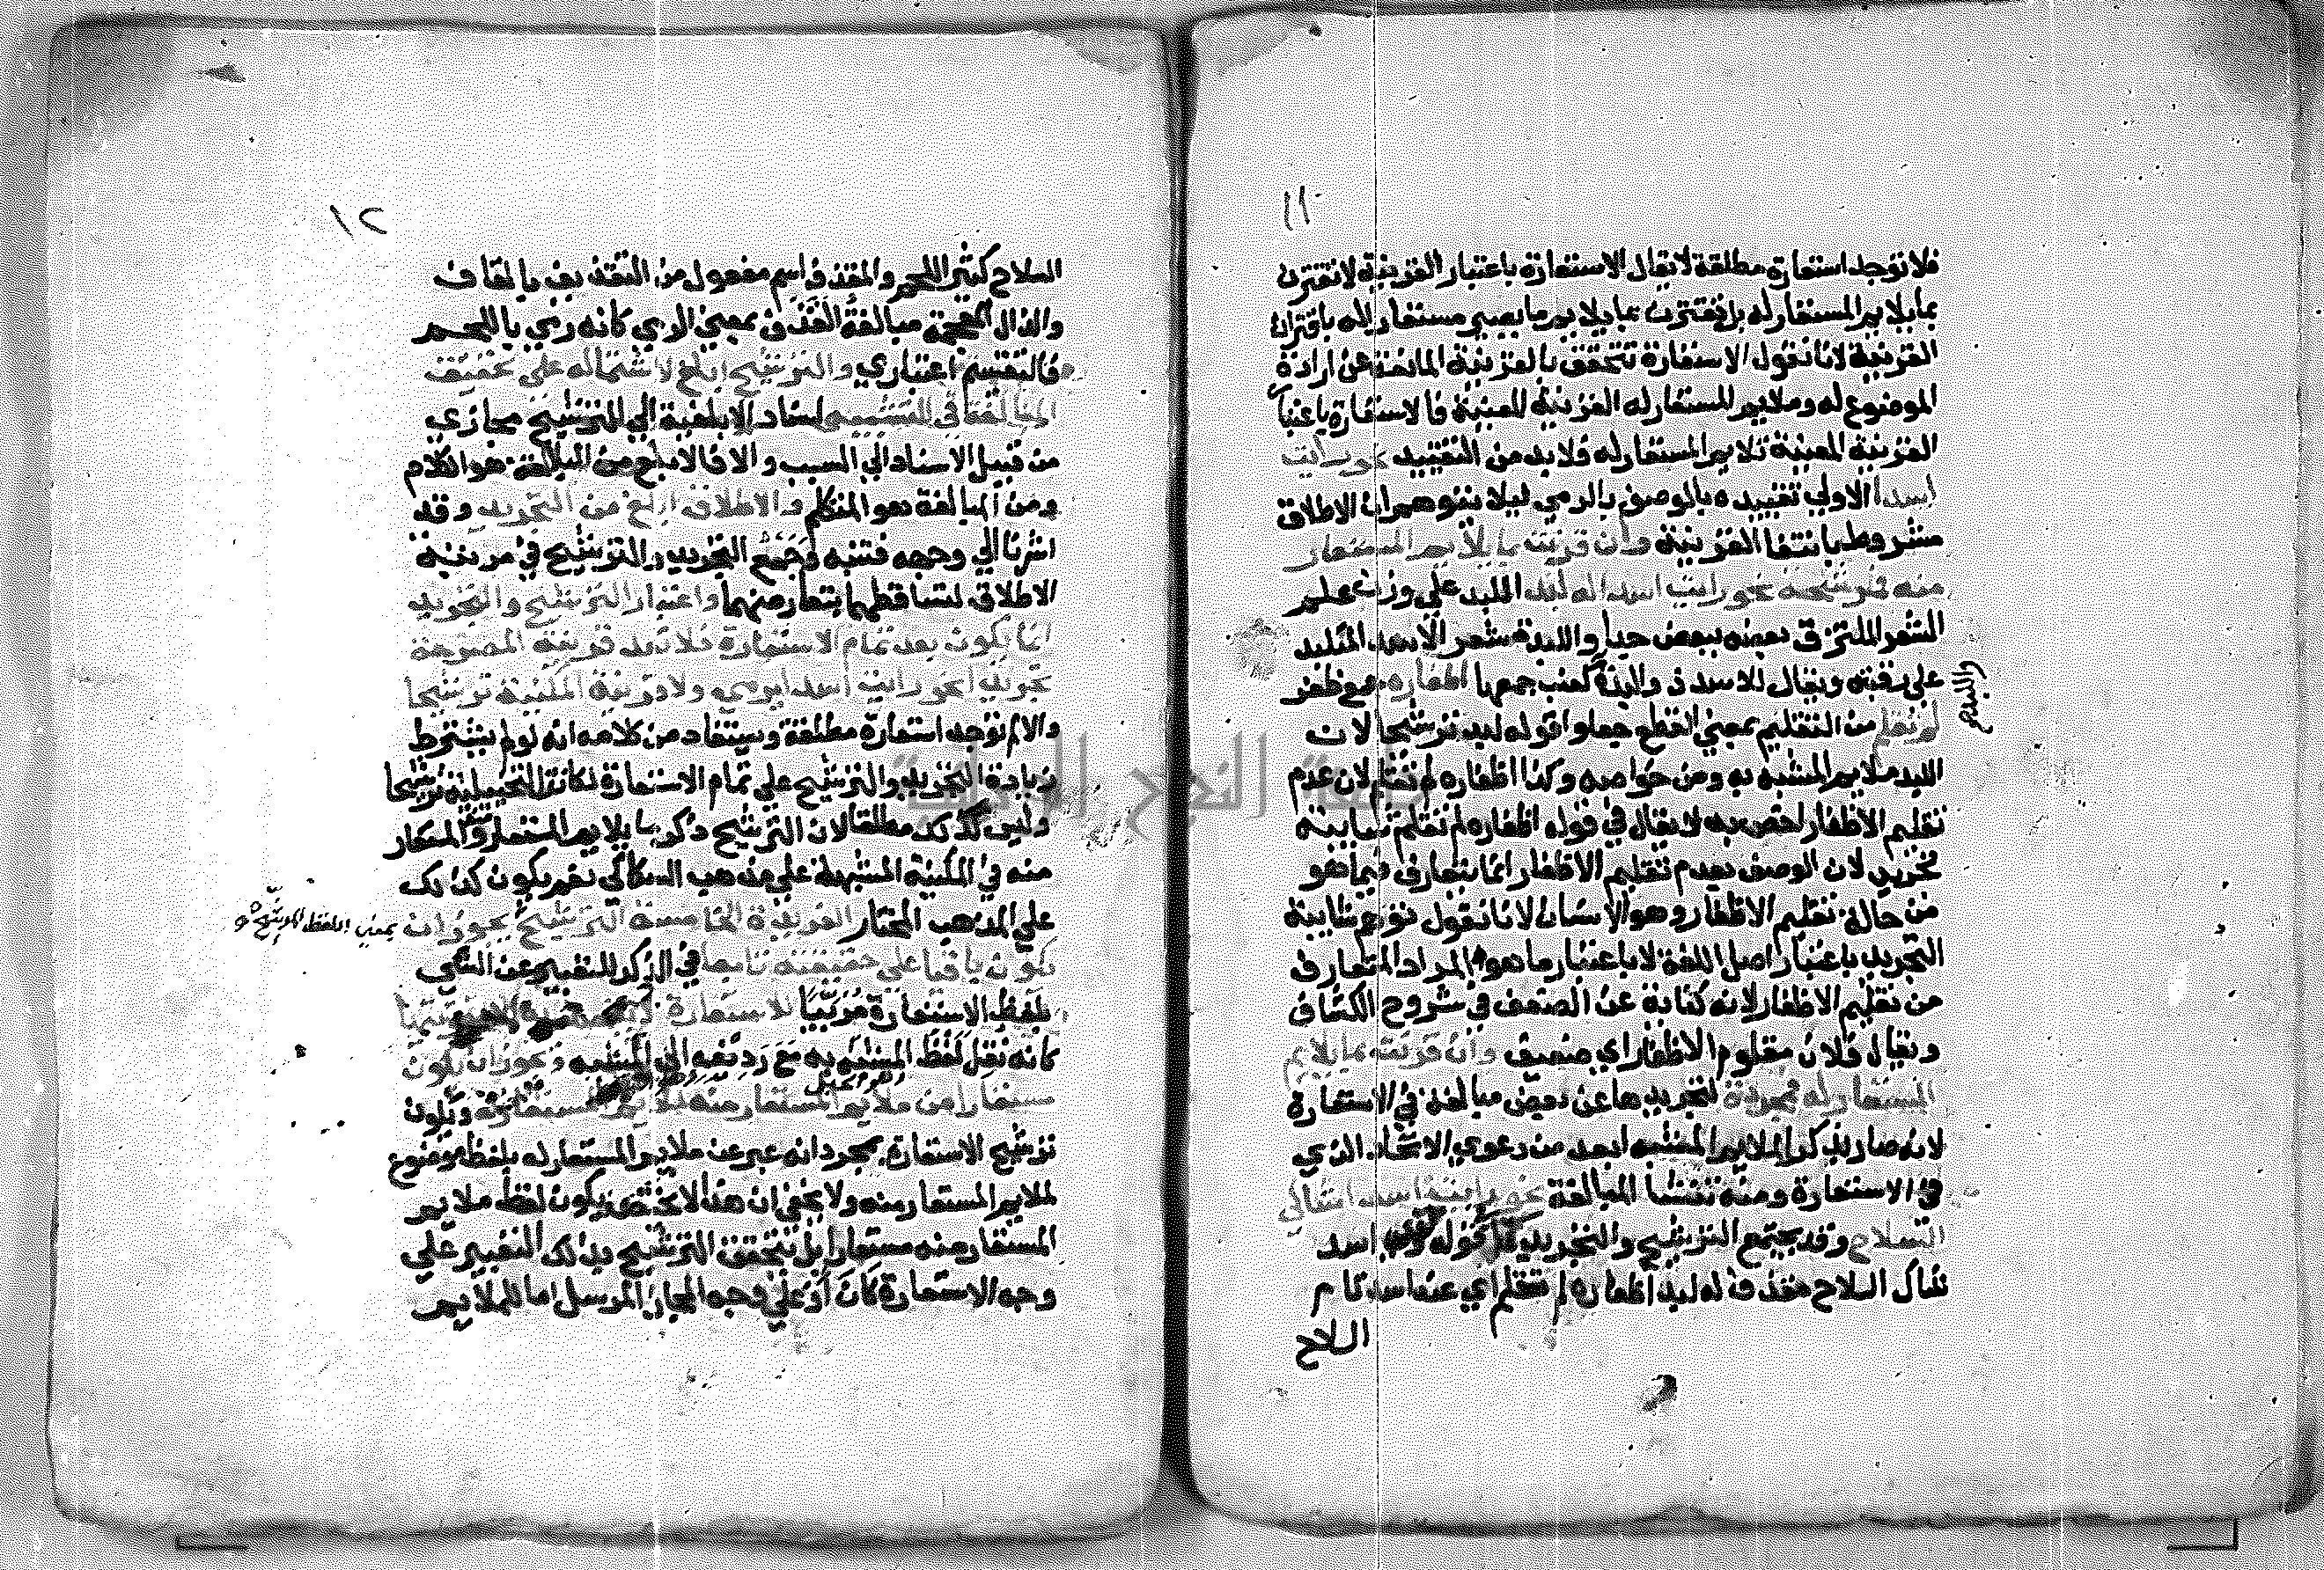 ١١
فلا توجد استعارة مطلقة لا يقال الاستعارة باعتبار القرينة لا تقترن
بما يلايم المستعار له بل تقترن بما يلايم ما يصير مستعار له باقتران
القرينة لانا نقول الاستعارة تتحقق بالقرينة المانعة عن ارادة
الموضوع له وملايم المستعار له القرينة المعينة فالاستعارة باعتبار
القرينة المعينة تلايم المستعار له فلا بد من التقييد نحو رايت
اسدا الاولي تقييده بالوصف بالرمي ليلا يتوهم ان الاطلاق
مشروط بانتفا القرينة وان قرنت بما يلايم المستعار
منه فترشيحية نحو رايت اسدا له لبد اللبد علي وزن علم
الشعر الملتزق بعضه ببعض حيا واللبدة شعر الاسد المتلبد
علي رقبته ويقال للاسد ذو اللبدة كعنب جمعها اظفاره جمع ظفر
لم تقلم من التقليم بمعني القطع جعلوا قوله لبد ترشيحا لان
اللبد ملايم المشبه به ومن خواصه وكذا اظفاره لم تقلم لان عدم
تقليم الاظفار اخص به لا يقال في قوله اظفاره لم تقلم شايبة
تجريد لان الوصف بعدم تقليم الاظفار انما يتعارف فيما هو
من حاله تقليم الاظفار وهو الانسان لانا نقول توهم شايبة
التجريد باعتبار اصل اللغة لا باعتبار ما هو المراد المتعارف
من تقليم الاظفار لانه كناية عن الضعف في شروح الكشاف
ويقال فلان مقلوم الاظفار اي ضعيف وان قرنت بما يلايم
المستعار له مجردة لتجريدها عن بعض مبالغة في الاستعارة
لانه صار بذكر الملايم المشبه ابعد من دعوي الاتحاد الذي
في الاستعارة ومنه تنشأ المبالغة نحو رايت اسدا شاكي
السلاح وقد يجتمع الترشيح والتجريد كقوله اسد
شاك السلاح مقذف له لبد اظفاره لم تقلم اي عند اسد تام
السلاح
١٢
السلاح كثير اللحم والمقذف اسم مفعول من التقذيف بالقاف
والذال المعجمة مبالغة القذف بمعني الرمي كانه رمي باللحم
فالتقسيم اعتباري والترشيح ابلغ لاشتماله علي تحقيق
المبالغة في التشبيه اسناد الابلغية الي الترشيح مجازي
من قبيل الاسناد الي السبب والا فالابلغ من البلاغة هو الكلام
ومن المبالغة هو المتكلم والاطلاق ابلغ من التجريد وقد
اشرنا الي وجهه فتنبه وجمع التجريد والترشيح في مرتبة
الاطلاق لتساقطهما بتعارضهما واعتبار الترشيح والتجريد
انما يكون بعد تمام الاستعارة فلا تعد قرينة المصرحة
تجريدا نحو رايت اسدا يرمي ولا قرينة المكنية ترشيحا
والا لم توجد استعارة مطلقة ويستفاد من كلامه انه لو لم يشترط
زيادة التجريد والترشيح علي تمام الاستعارة لكانت التخييلية ترشيحا
وليس كذلك مطلقا لان الترشيح ذكر ما يلايم المستعار منه والمستعار
منه في المكنية المشبه له علي مذهب السكاكي نعم يكون كذلك
علي المذهب المختار الفريدة الخامسة الترشيح يجوز ان
بمعني اللفظ المرشح
يكون باقيا علي حقيقته تابعا في الذكر للتعبير عن الشي
بلفظ الاستعارة مرتبا للاستعارة
كانه نقل لفظ المشبه به مع رديفه الي المشبه ويجوز ان يكون
مستعارا من ملايم المستعار منه لملايم المستعار له ويكون
ترشيح الاستعارة بمجرد انه عبر عن ملايم المستعار له بلفظ موضوع
لملايم المستعار منه ولا يخفي ان هذا لا يختص بكون لفظ ملايم
المستعار منه مستعارا بل يتحقق الترشيح بذلك التعبير علي
وجه الاستعارة كان او علي وجه المجاز المرسل اما للملايم